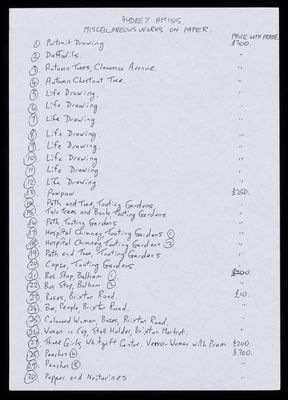 AUDREY AMISS
MISCELLANEOUS WORKS ON PAPER.
PRICE WITH FRAME
1 Portrait Drawing £300.
2 Daffodils. "
3 Autumn Trees, Clarence Avenue. "
4 Autumn Chestnut Tree. "
5 Life Drawing. "
6 Life Drawing. "
7 Life Drawing "
8 Life Drawing. "
9 Life Drawing. "
10 Life Drawing. "
11 Life Drawing "
12 Life Drawing. "
13 Pawpaw. £250.
14 Path and Tree, Tooting Gardens. "
15 Two Trees and Bank, Tooting Gardens. "
16 Path, Tooting Gardens "
17 Hospital Chimney, Tooting Gardens 1 "
18 Hospital Chimney, Tooting Gardens 2 "
19 Path and Tree, Tooting Gardens "
20 Copse, Tooting Gardens "
21 Bus Stop, Balham 1 £200.
22 Bus Stop, Balham 2 "
23 Buses, Brixton Road
24 Bus, People, Brixton Road. "
25 Coloured Woman, Buses, Brixton Road. "
26 Woman in Cap, Stall Holder, Brixton Market. "
27 Three Girls, Whitgift Centre. Verso: Woman with Pram £200
28 Peaches £300.
29 Peaches "
30 Pepper and Nectarines "